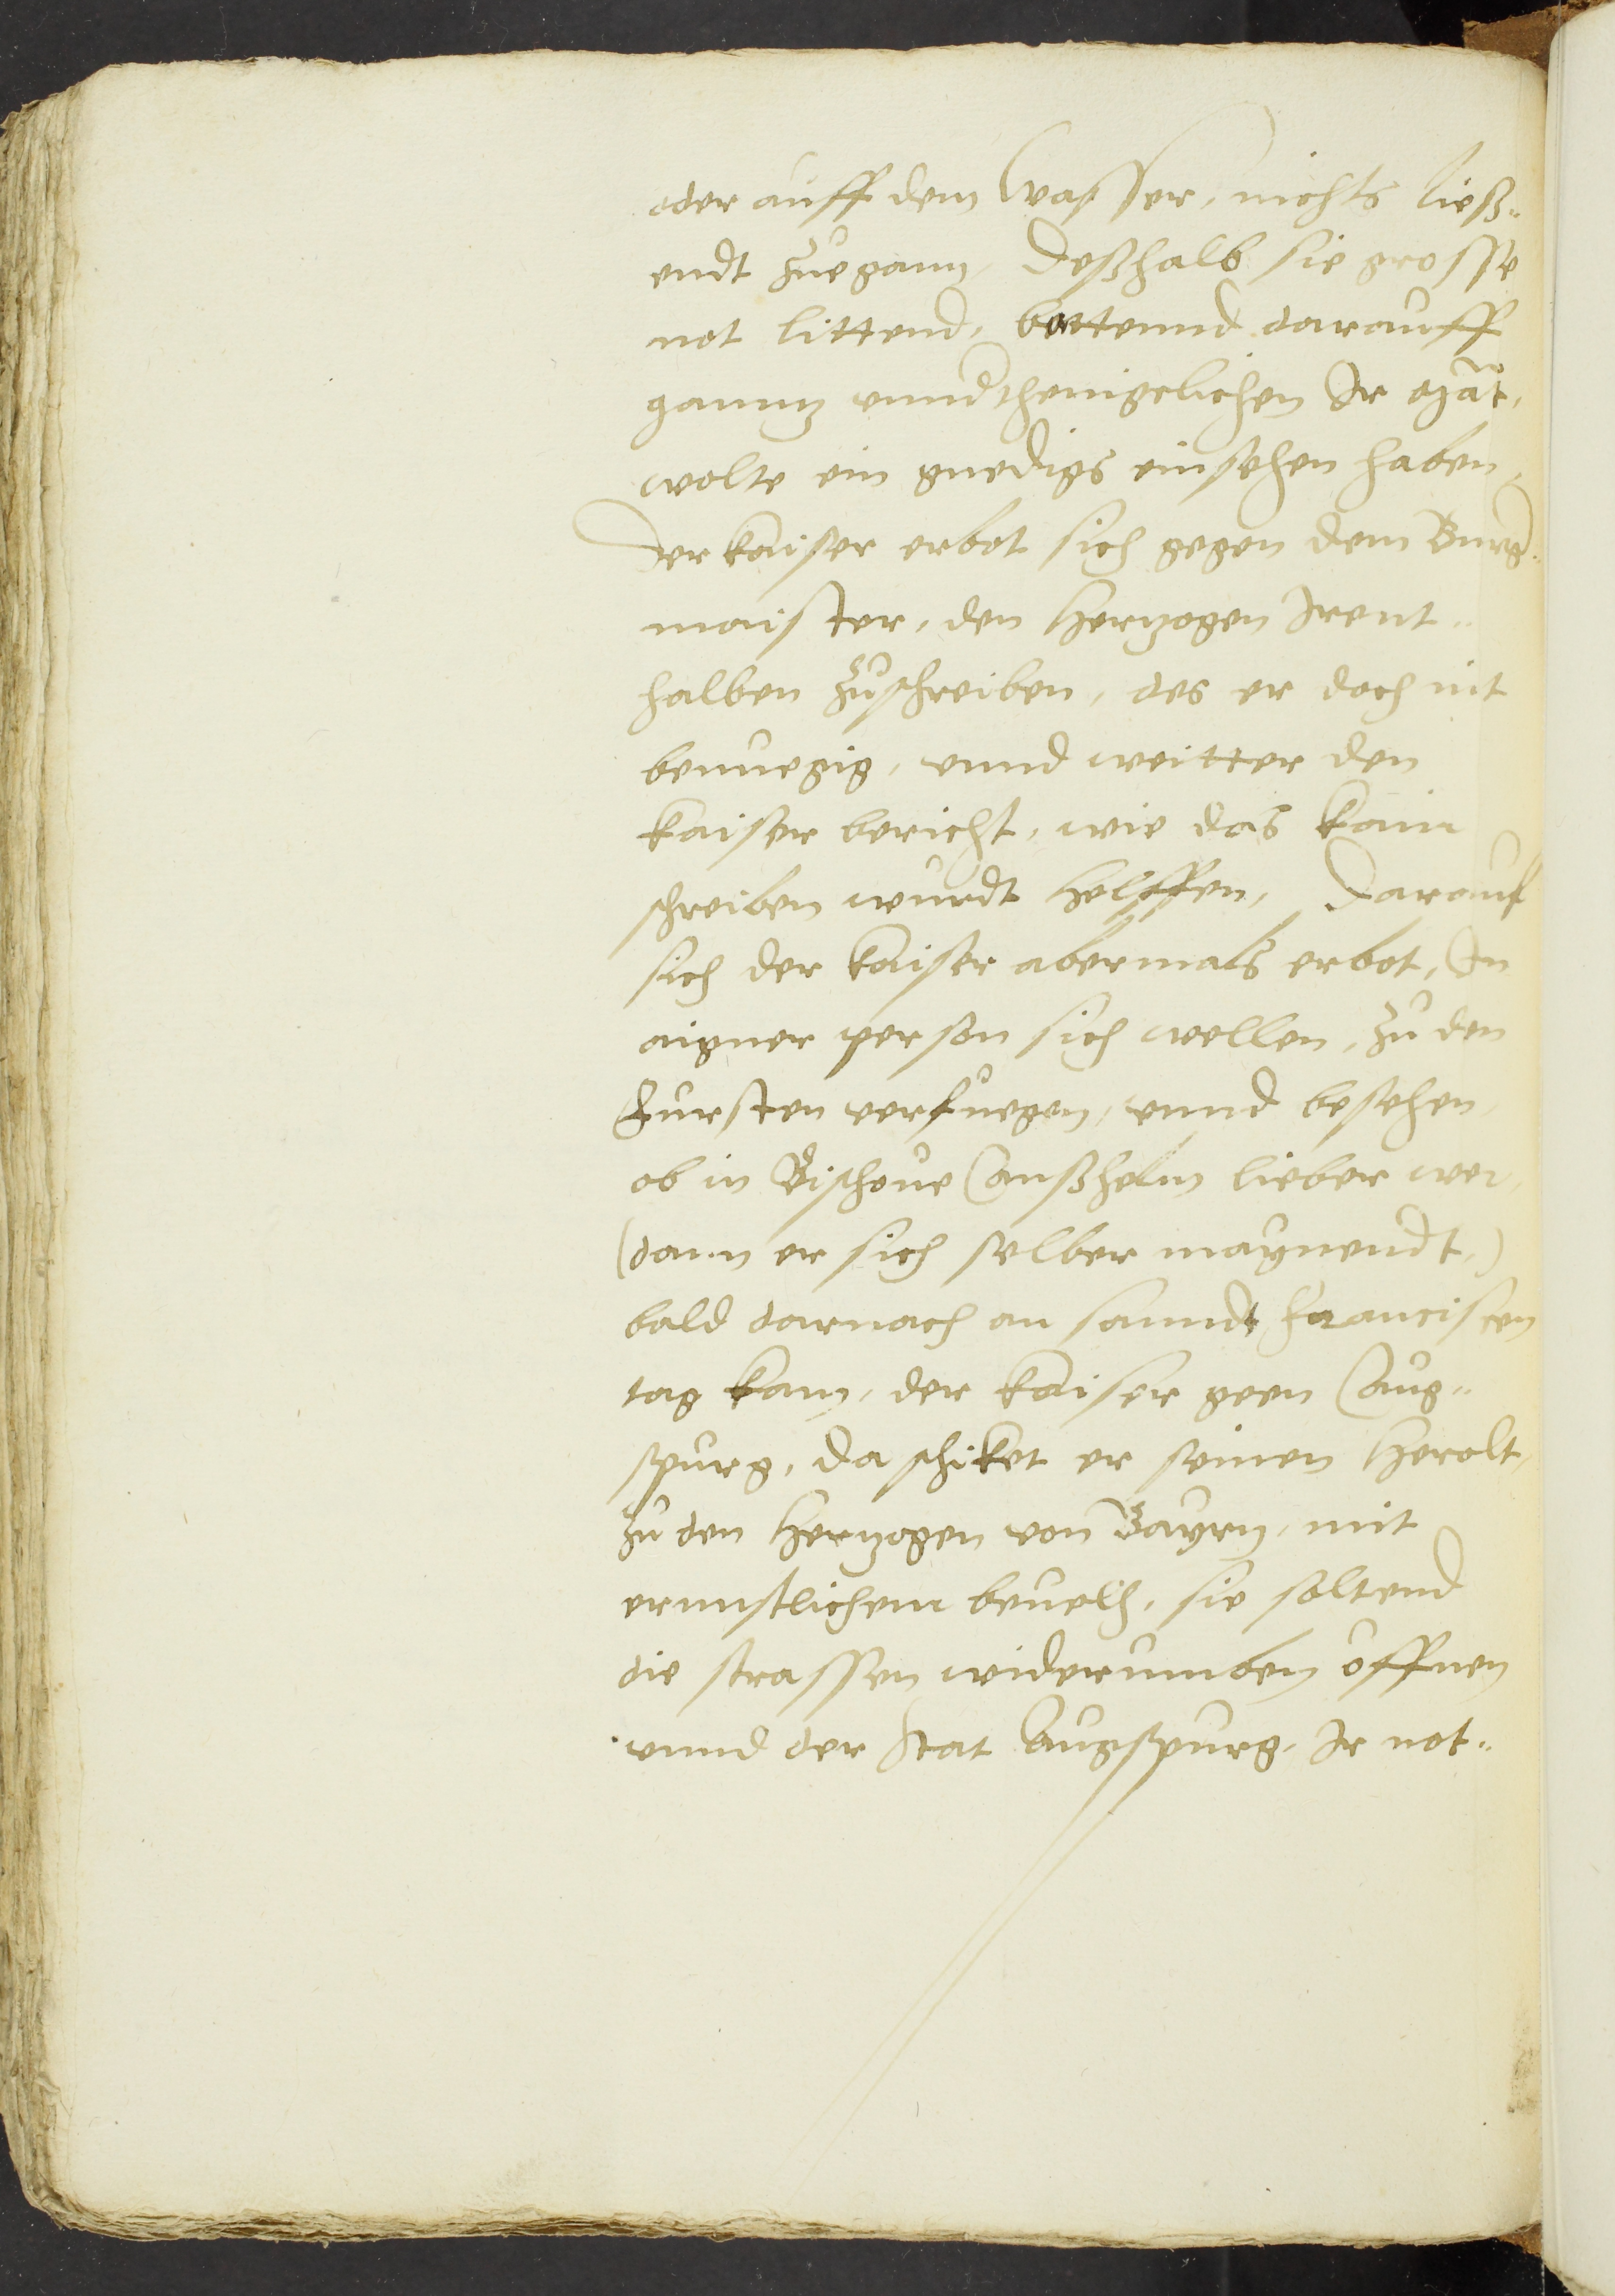 oder auff dem Wasser, nichts liess¬
endt zuegann, Deßhalb sie grosse
not littend, battennd darauff
ganntz vnndthenigelichen Ir Mät,
wolte ein gnedigs einsehen haben,
Der kaiser erbot sich gegen dem Burg¬
maister, den Hertzogen Irent¬
halben zuschreiben, des er doch nit
benuegig, vnnd weitter den
kaiser bericht, wie das kain
schreiben wurdt helffen, Darauf
sich der kaiser abermals erbot, In
aigner person sich wellen, zu den
Fursten verfuegen, vnnd besehen,
ob in Bischoue Anßhelm lieber wer,
(dann er sich selber maynendt,)
bald darnach an sanndt Francisten
tag kam, der kaiser geen Aug¬
spurg, da schiket er seinen Herolt,
zu den Hertzogen von Bayrn, mit
ernnstlichem beuelh, sie soltend
die strassen widerumben öffnen
vnnd der Stat Augspurg, Ir not¬